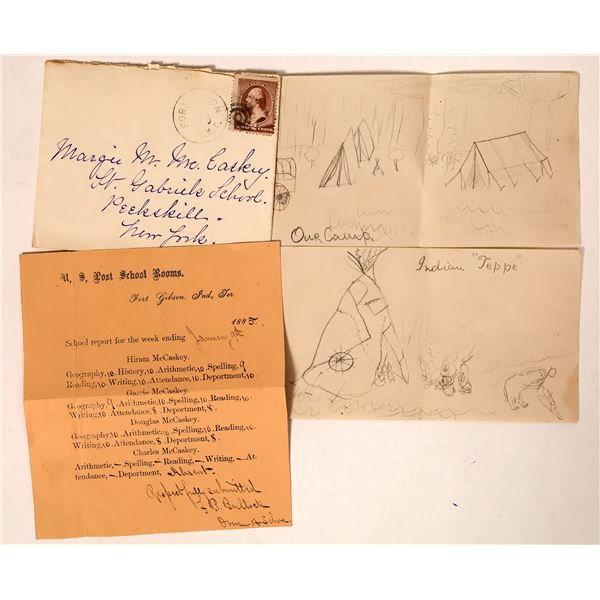 Margie M. Mc Caskey.
St. Gabriels School.
Peekskill.
New York.
Our Camp.
Indian "Teppe"
U. S. Post School Rooms.
Fort Gibson, Ind, Ter.
1885.
School report for the week ending January 9th
Hiram McCaskey.
Geography, 10. History, 10. Arithmetic, 10. Spelling, 9
Reading, 10. Writing, 10. Attendance, 10. Department, 10.
McCaskey.
Geography, 9. Arithmetic, 10. Spelling, 10. Reading, 10.
Writing, 10. Attendance, 8. Department, 8.
Douglas McCaskey.
Geography, 10. Arithmetic, 10. Spelling, 10. Reading, 10.
Writing, 10. Attendance, 8. Department, 8.
Charles McCaskey.
Arithmetic, – Spelling, – Reading, – Writing, – At-
tendance, – Department, Absent.
Respectfully submitted
Bullock